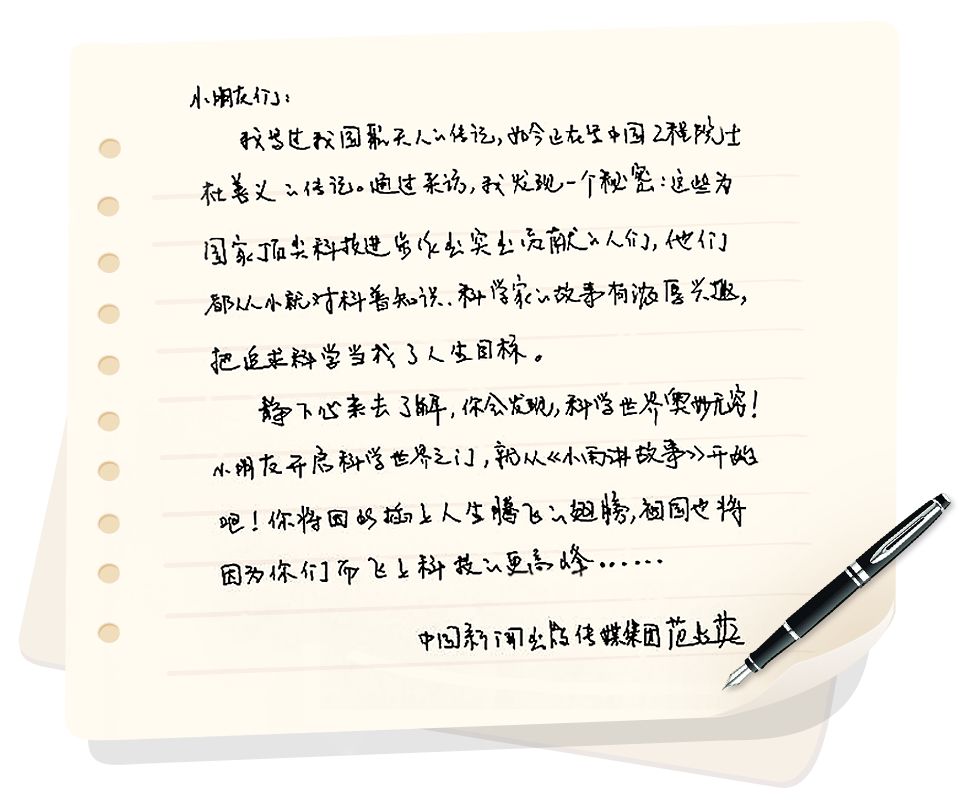 小朋友们：
我写过我国航天人的传记，如今正在写中国工程院士
杜善义的传记。通过采访，我发现一个秘密：这些为
国家顶尖科技进步作出突出贡献的人们，他们
都从小就对科普知识、科学家的故事有浓厚兴趣，
把追求科学当成了人生目标。
静下心来去了解，你会发现，科学世界奥妙无穷！
小朋友开启科学世界之门，就从《小雨讲故事》开始
吧！你将因此插上人生腾飞的翅膀，祖国也将
因为你们而飞上科技的更高峰……
中国新闻出版传媒集团 范